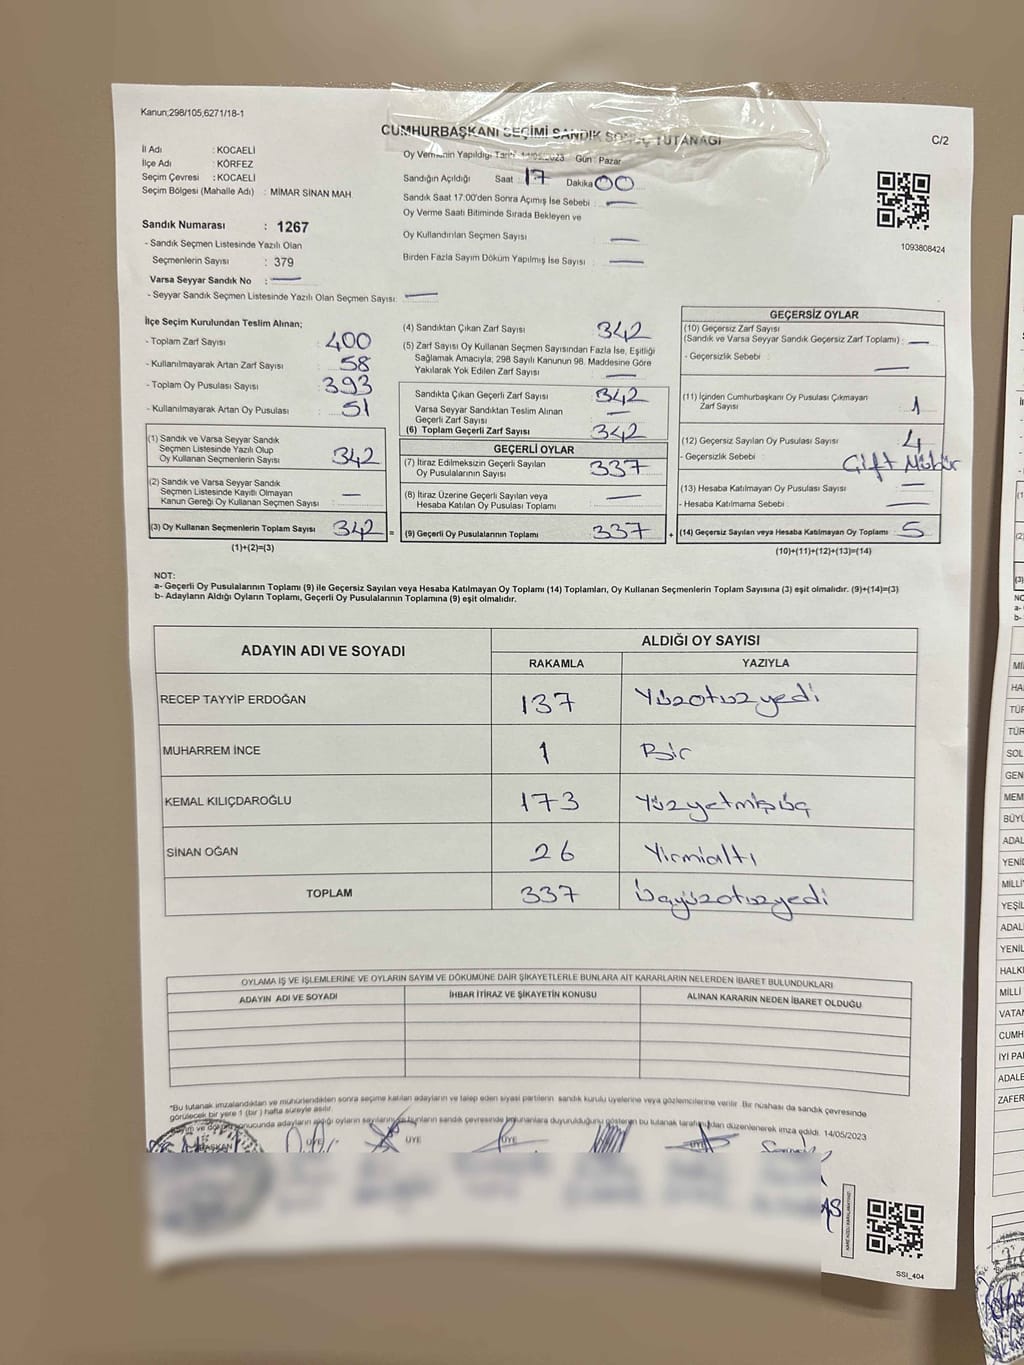 Kanun;298/105,6271/18-1
CUMHURBAŞKANI SEÇİMİ SANDIK SONUÇ TUTANAĞI
C/2
İl Adı : KOCAELİ
İlçe Adı : KÖRFEZ
Seçim Çevresi : KOCAELİ
Seçim Bölgesi (Mahalle Adı) : MİMAR SİNAN MAH.
Sandık Numarası : 1267
- Sandık Seçmen Listesinde Yazılı Olan
Seçmenlerin Sayısı : 379
Varsa Seyyar Sandık No :
- Seyyar Sandık Seçmen Listesinde Yazılı Olan Seçmen Sayısı:
Oy Vermenin Yapıldığı Tarih 14/05/2023 Gün: Pazar
Sandığın Açıldığı Saat 17 Dakika 00
Sandık Saat 17:00'den Sonra Açımış İse Sebebi :
Oy Verme Saati Bitiminde Sırada Bekleyen ve
Oy Kullandırılan Seçmen Sayısı :
Birden Fazla Sayım Döküm Yapılmış İse Sayısı :
1093808424
İlçe Seçim Kurulundan Teslim Alınan;
- Toplam Zarf Sayısı : 400
- Kullanılmayarak Artan Zarf Sayısı : 58
- Toplam Oy Pusulası Sayısı : 393
- Kullanılmayarak Artan Oy Pusulası : 51
(1) Sandık ve Varsa Seyyar Sandık
Seçmen Listesinde Yazılı Olup
Oy Kullanan Seçmenlerin Sayısı : 342
(2) Sandık ve Varsa Seyyar Sandık
Seçmen Listesinde Kayıtlı Olmayan
Kanun Gereği Oy Kullanan Seçmen Sayısı : —
(3) Oy Kullanan Seçmenlerin Toplam Sayısı : 342 =
(1)+(2)=(3)
(4) Sandıktan Çıkan Zarf Sayısı : 342
(5) Zarf Sayısı Oy Kullanan Seçmen Sayısından Fazla İse, Eşitliği
Sağlamak Amacıyla; 298 Sayılı Kanunun 98. Maddesine Göre
Yakılarak Yok Edilen Zarf Sayısı : —
Sandıkta Çıkan Geçerli Zarf Sayısı : 342
Varsa Seyyar Sandıktan Teslim Alınan
Geçerli Zarf Sayısı : —
(6) Toplam Geçerli Zarf Sayısı : 342
GEÇERLİ OYLAR
(7) İtiraz Edilmeksizin Geçerli Sayılan
Oy Pusulalarının Sayısı : 337
(8) İtiraz Üzerine Geçerli Sayılan veya
Hesaba Katılan Oy Pusulası Toplamı : —
(9) Geçerli Oy Pusulalarının Toplamı : 337 +
GEÇERSİZ OYLAR
(10) Geçersiz Zarf Sayısı
(Sandık ve Varsa Seyyar Sandık Geçersiz Zarf Toplamı) : —
- Geçersizlik Sebebi : —
(11) İçinden Cumhurbaşkanı Oy Pusulası Çıkmayan
Zarf Sayısı : 1
(12) Geçersiz Sayılan Oy Pusulası Sayısı : 4
- Geçersizlik Sebebi : Çift Mühür
(13) Hesaba Katılmayan Oy Pusulası Sayısı : —
- Hesaba Katılmama Sebebi : —
(14) Geçersiz Sayılan veya Hesaba Katılmayan Oy Toplamı : 5
(10)+(11)+(12)+(13)=(14)
NOT:
a- Geçerli Oy Pusulalarının Toplamı (9) ile Geçersiz Sayılan veya Hesaba Katılmayan Oy Toplamı (14) Toplamları, Oy Kullanan Seçmenlerin Toplam Sayısına (3) eşit olmalıdır. (9)+(14)=(3)
b- Adayların Aldığı Oyların Toplamı, Geçerli Oy Pusulalarının Toplamına (9) eşit olmalıdır.
ADAYIN ADI VE SOYADI ALDIĞI OY SAYISI
RAKAMLA YAZIYLA
RECEP TAYYİP ERDOĞAN 137 Yüzotuzyedi
MUHARREM İNCE 1 Bir
KEMAL KILIÇDAROĞLU 173 Yüzyetmişüç
SİNAN OĞAN 26 Yirmialtı
TOPLAM 337 üçyüzotuzyedi
OYLAMA İŞ VE İŞLEMLERİNE VE OYLARIN SAYIM VE DÖKÜMÜNE DAİR ŞİKAYETLERLE BUNLARA AİT KARARLARIN NELERDEN İBARET BULUNDUKLARI
ADAYIN ADI VE SOYADI İHBAR İTİRAZ VE ŞİKAYETİN KONUSU ALINAN KARARIN NEDEN İBARET OLDUĞU
*Bu tutanak imzalandıktan ve mühürlendikten sonra seçime katılan adayların ve talep eden siyasi partilerin sandık kurulu üyelerine veya gözlemcilerine verilir. Bir nüshası da sandık çevresinde
görülecek bir yere 1 (bir) hafta süreyle asılır.
sonucunda adayların aldığı oyların sayılarını bunların sandık çevresinde bulunanlara duyurulduğunu gösteren bu tutanak tarafımızdan düzenlenerek imza edildi. 14/05/2023
BAŞKAN ÜYE ÜYE ÜYE ÜYE
SSI_404